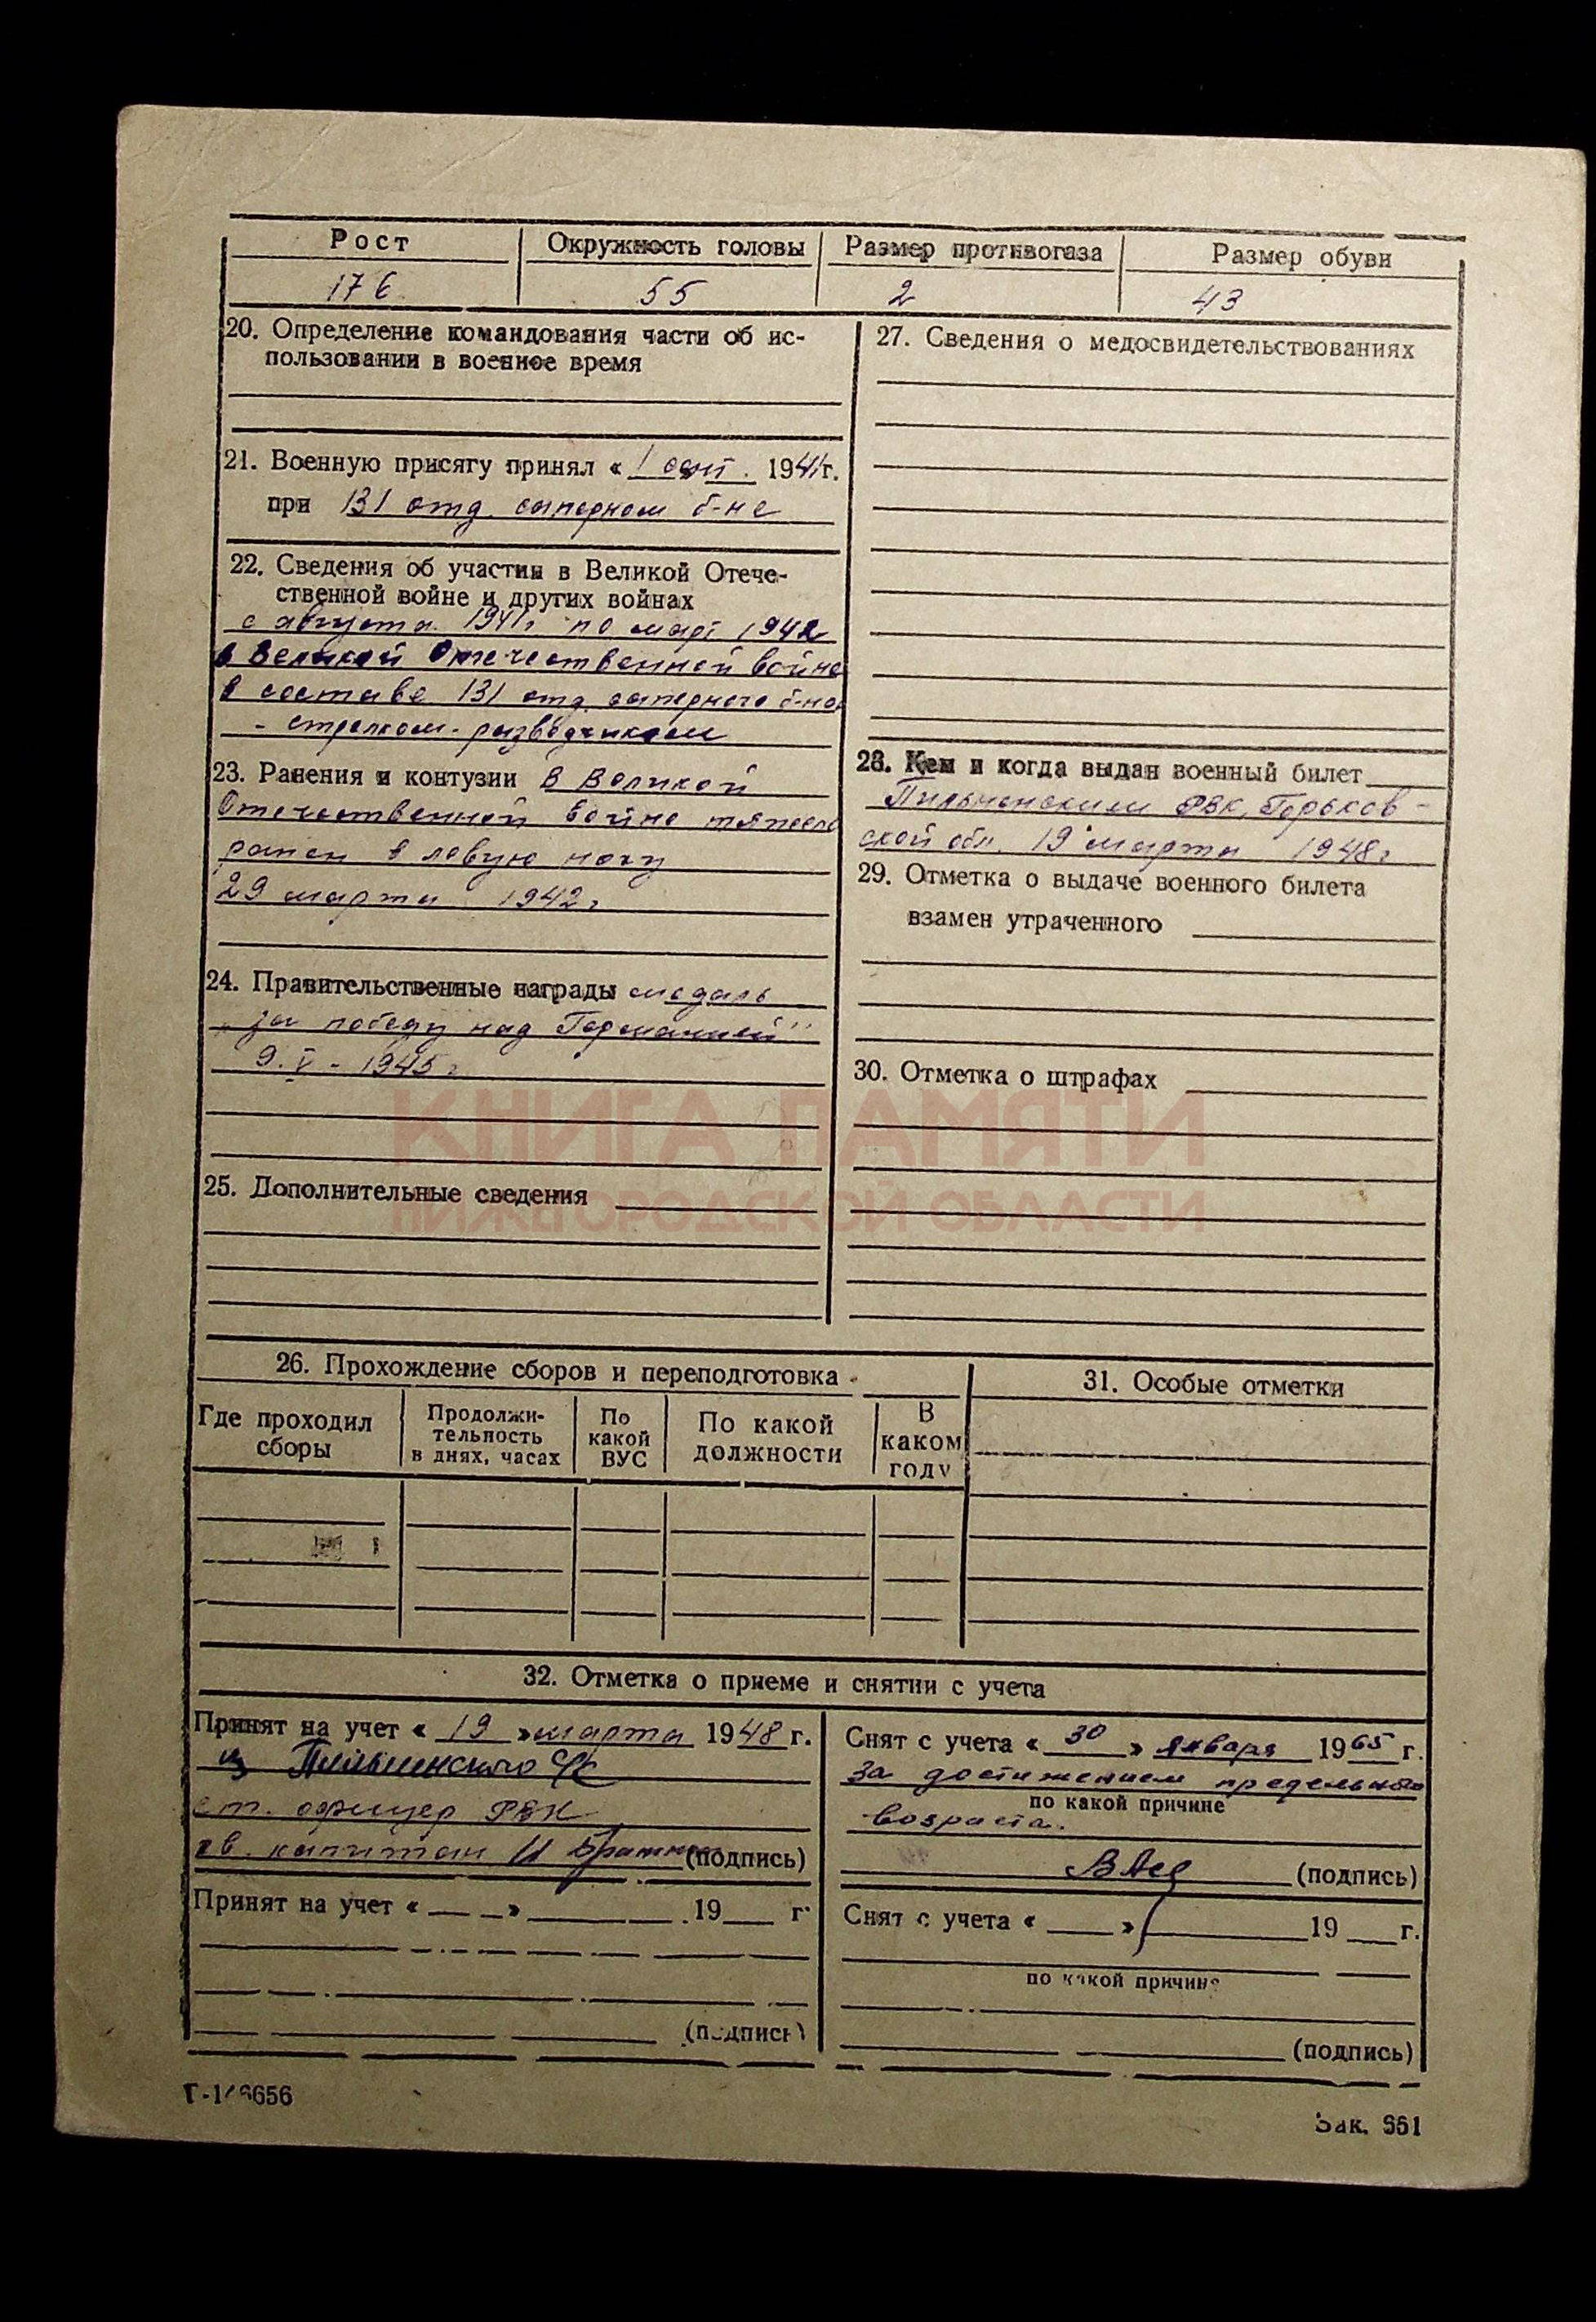 Рост Окружность головы Размер противогаза Размер обуви
176 55 2 43
20. Определение командования части об ис-
пользовании в военное время
21. Военную присягу принял « 1 сент. 1941г.
при 131 отд. саперном б-не
22. Сведения об участии в Великой Отече-
ственной войне и других войнах
с августа 1941г по март 1942
в Великой Отечественной войне
в составе 131 отд. саперного б-на
- стрелком-разведчиком
23. Ранения и контузии В Великой
Отечественной войне тяжело
ранен в левую ногу
29 марта 1942г
24. Правительственные награды медаль
„за победу над Германией"
9.V - 1945г
25. Дополнительные сведения
27. Сведения о медосвидетельствованиях
28. Кем и когда выдан военный билет
Пильненским РВК, Горьков-
ской обл. 19 марта 1948г
29. Отметка о выдаче военного билета
взамен утраченного
30. Отметка о штрафах
КНИГА ПАМЯТИ
НИЖЕГОРОДСКОЙ ОБЛАСТИ
26. Прохождение сборов и переподготовка
31. Особые отметки
Где проходил
сборы
Продолжи-
тельность
в днях, часах
По
какой
ВУС
По какой
должности
В
каком
году
32. Отметка о приеме и снятии с учета
Принят на учет « 19 » марта 1948 г.
из Пильненского
ст. офицер РВК
гв. капитан И (подпись)
Снят с учета « 30 » января 1965 г.
за достижением предельного
по какой причине
возраста.
(подпись)
Принят на учет « » 19 г.
(подпись)
Снят с учета « » 19 г.
по какой причине
(подпись)
Зак. 551